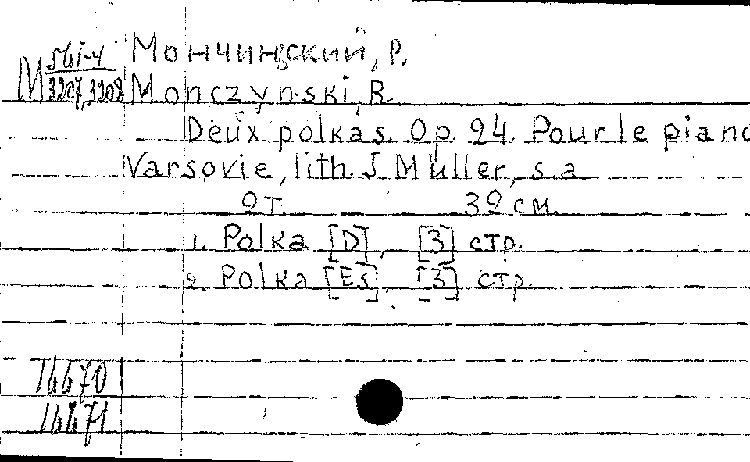 Мончинский, Р.
М 561-4
3207,3208
Monczynski, R.
Deux polkas. Op. 24. Pour le piano
Varsovie, lith. J. Müller, s. a.
2 т. 32 см.
1. Polka [D], [3] стр.
2. Polka [Es], [3] стр.
16670
16671